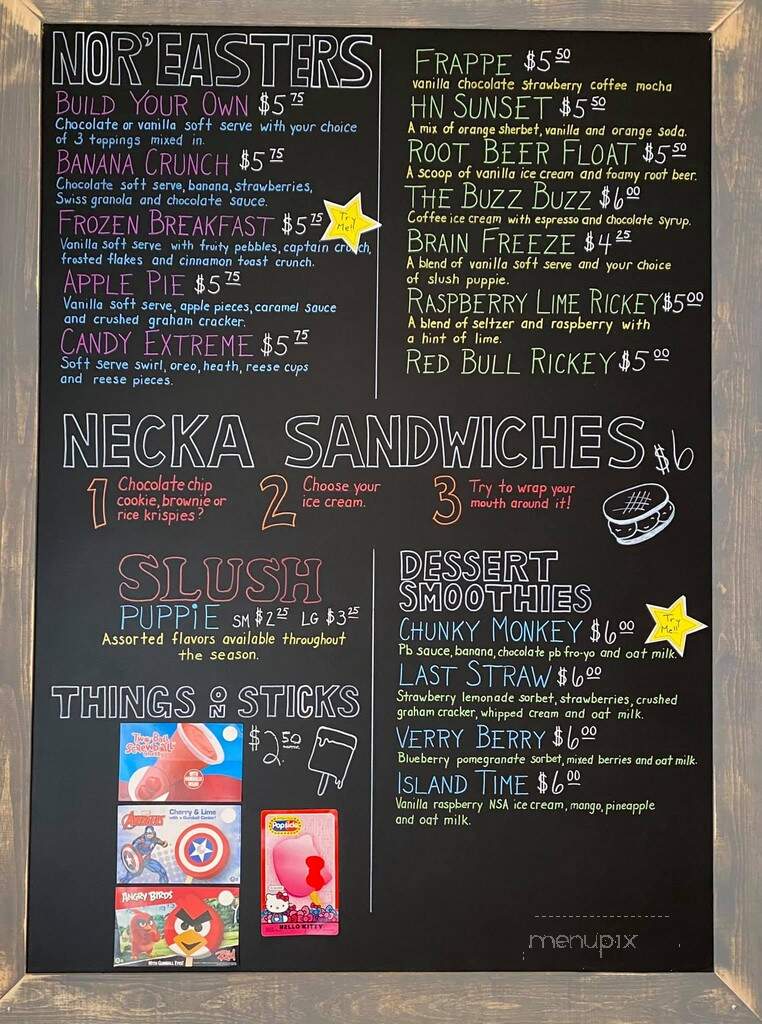 NOR'EASTERS
BUILD YOUR OWN $5 75
Chocolate or vanilla soft serve with your choice
of 3 toppings mixed in.
BANANA CRUNCH $5 75
Chocolate soft serve, banana, strawberries,
Swiss granola and chocolate sauce.
FROZEN BREAKFAST $5 75
Try
Me!!
Vanilla soft serve with fruity pebbles, captain crunch,
frosted flakes and cinnamon toast crunch.
APPLE PIE $5 75
Vanilla soft serve, apple pieces, caramel sauce
and crushed graham cracker.
CANDY EXTREME $5 75
Soft serve swirl, oreo, heath, reese cups
and reese pieces.
FRAPPE $5 50
vanilla chocolate strawberry coffee mocha
HN SUNSET $5 50
A mix of orange sherbet, vanilla and orange soda.
ROOT BEER FLOAT $5 50
A scoop of vanilla ice cream and foamy root beer.
THE BUZZ BUZZ $6 00
Coffee ice cream with espresso and chocolate syrup.
BRAIN FREEZE $4 25
A blend of vanilla soft serve and your choice
of slush puppie.
RASPBERRY LIME RICKEY $5 00
A blend of seltzer and raspberry with
a hint of lime.
RED BULL RICKEY $5 00
NECKA SANDWICHES $6
1 Chocolate chip
cookie, brownie or
rice krispies?
2 Choose your
ice cream.
3 Try to wrap your
mouth around it!
SLUSH
PUPPiE SM $2 25 LG $3 25
Assorted flavors available throughout
the season.
THINGS ON STICKS
$2.50
Two Ball
Screwball
AVENGERS
Cherry & Lime
with a Gumball Center!
ANGRY BIRDS
WITH GUMBALL EYES!
Popsicle
HELLO KITTY
DESSERT
SMOOTHIES
CHUNKY MONKEY $6 00
Try
Me!!
Pb sauce, banana, chocolate pb fro-yo and oat milk.
LAST STRAW $6 00
Strawberry lemonade sorbet, strawberries, crushed
graham cracker, whipped cream and oat milk.
VERRY BERRY $6 00
Blueberry pomegranate sorbet, mixed berries and oat milk.
ISLAND TIME $6 00
Vanilla raspberry NSA ice cream, mango, pineapple
and oat milk.
menupix